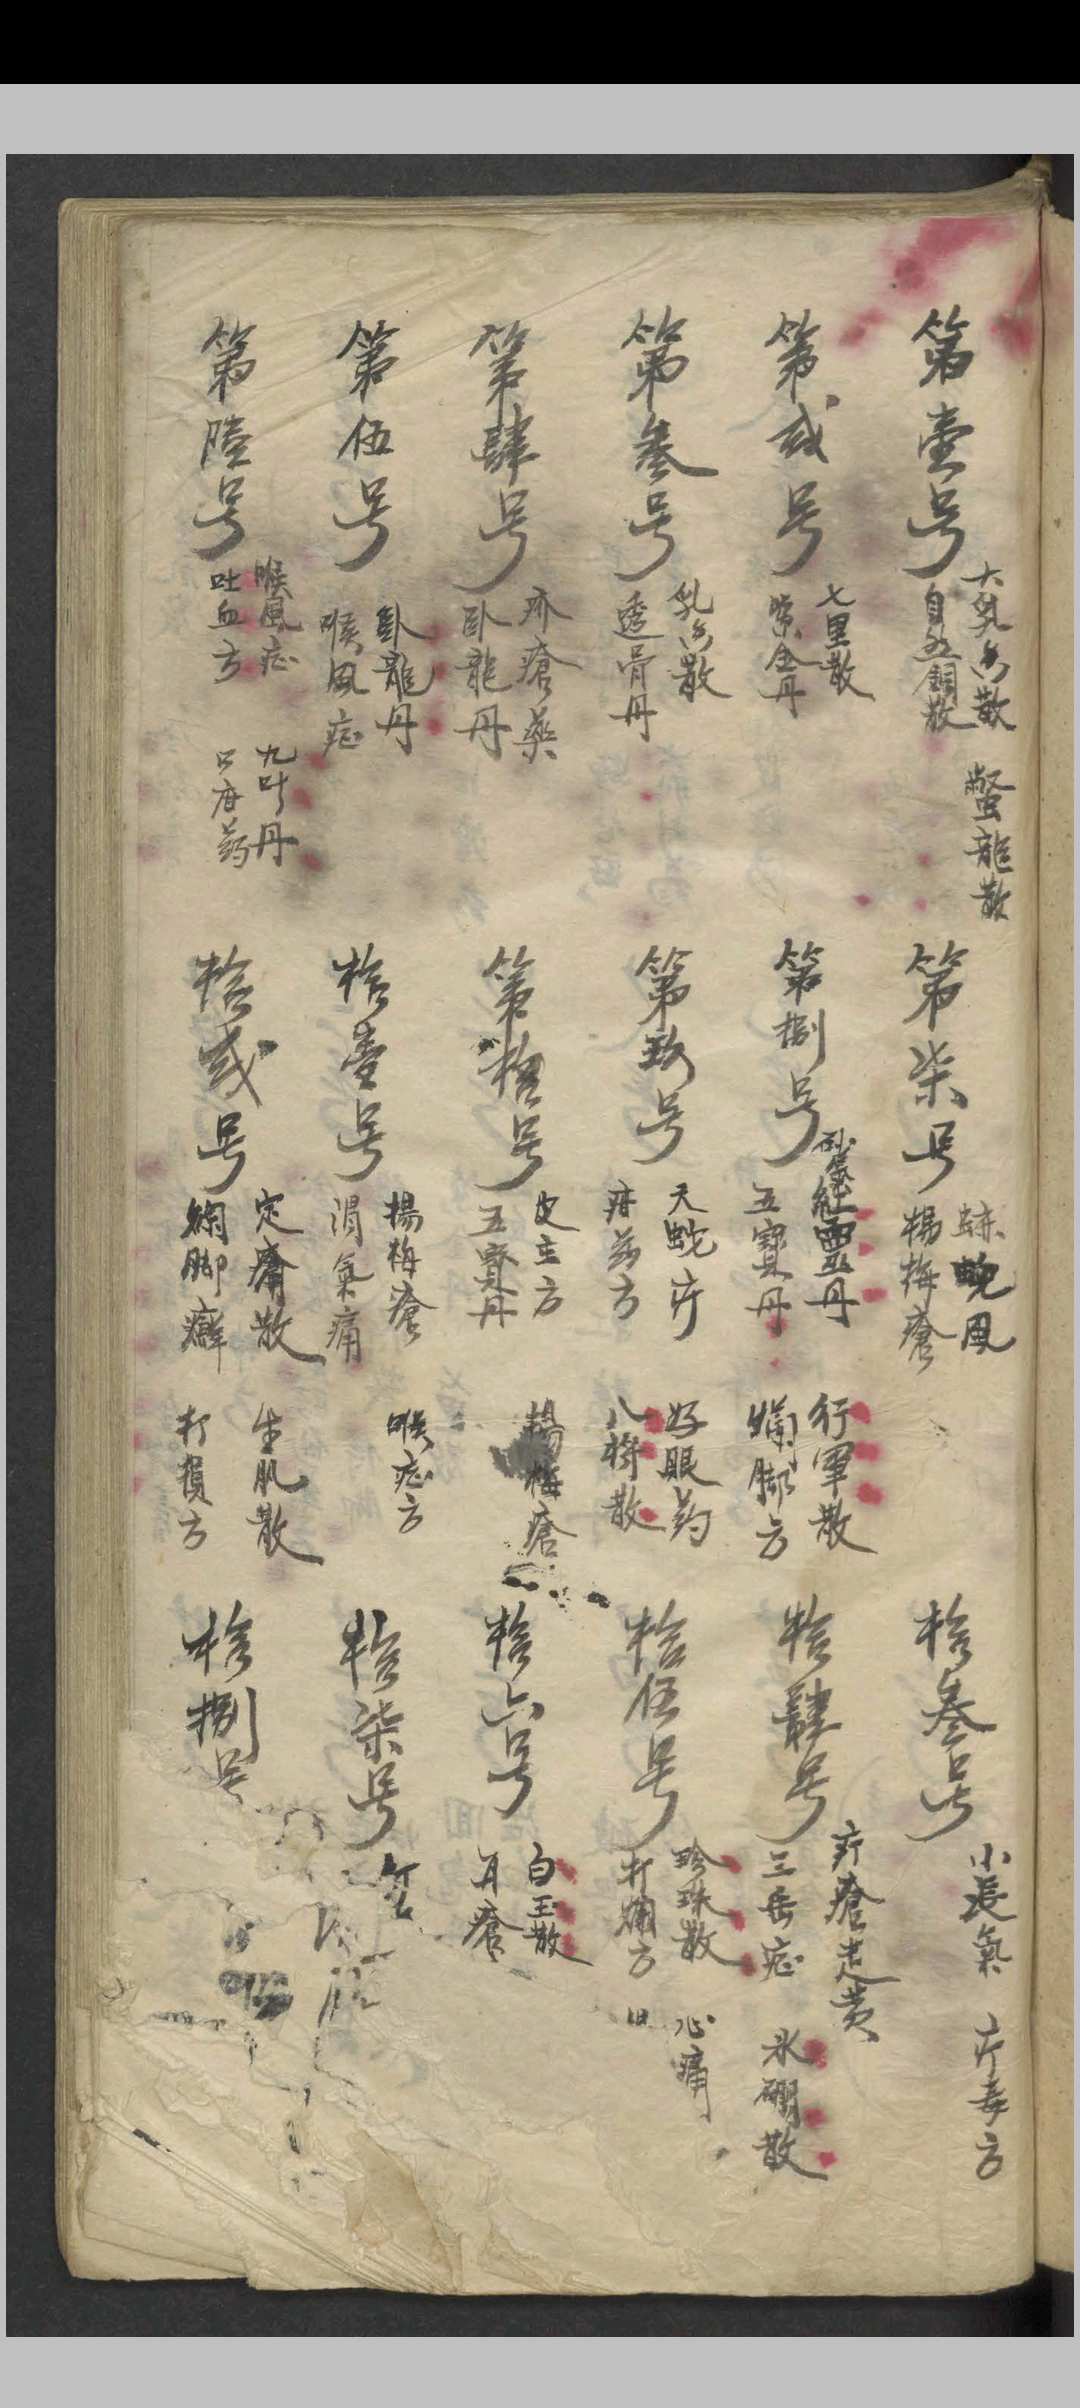 第壹号
大乳香散
自然銅散
鱉龍散
第弍号
七里散
紫金丹
第叁号
乳香散
透骨丹
第肆号
疥瘡藥
卧龍丹
第伍号
卧龍丹
喉風症
第陸号
喉風症
吐血方
九叶丹
口疳药
第柒号
楊梅瘡
第捌号
紅靈丹
五寳丹
行軍散
爛脚方
第玖号
天蛇疔
疳药方
好眼药
八將散
第拾号
五寳丹
楊梅瘡
拾壹号
楊梅瘡
氣痛
喉症方
拾弍号
定痛散
爛脚癬
生肌散
打損方
拾叁号
小長氣
疔毒方
拾肆号
疔瘡走黄
三岳症
氷硼散
拾伍号
珍珠散
打爛方
心痛
拾六号
白玉散
耳瘡
拾柒号
拾捌号